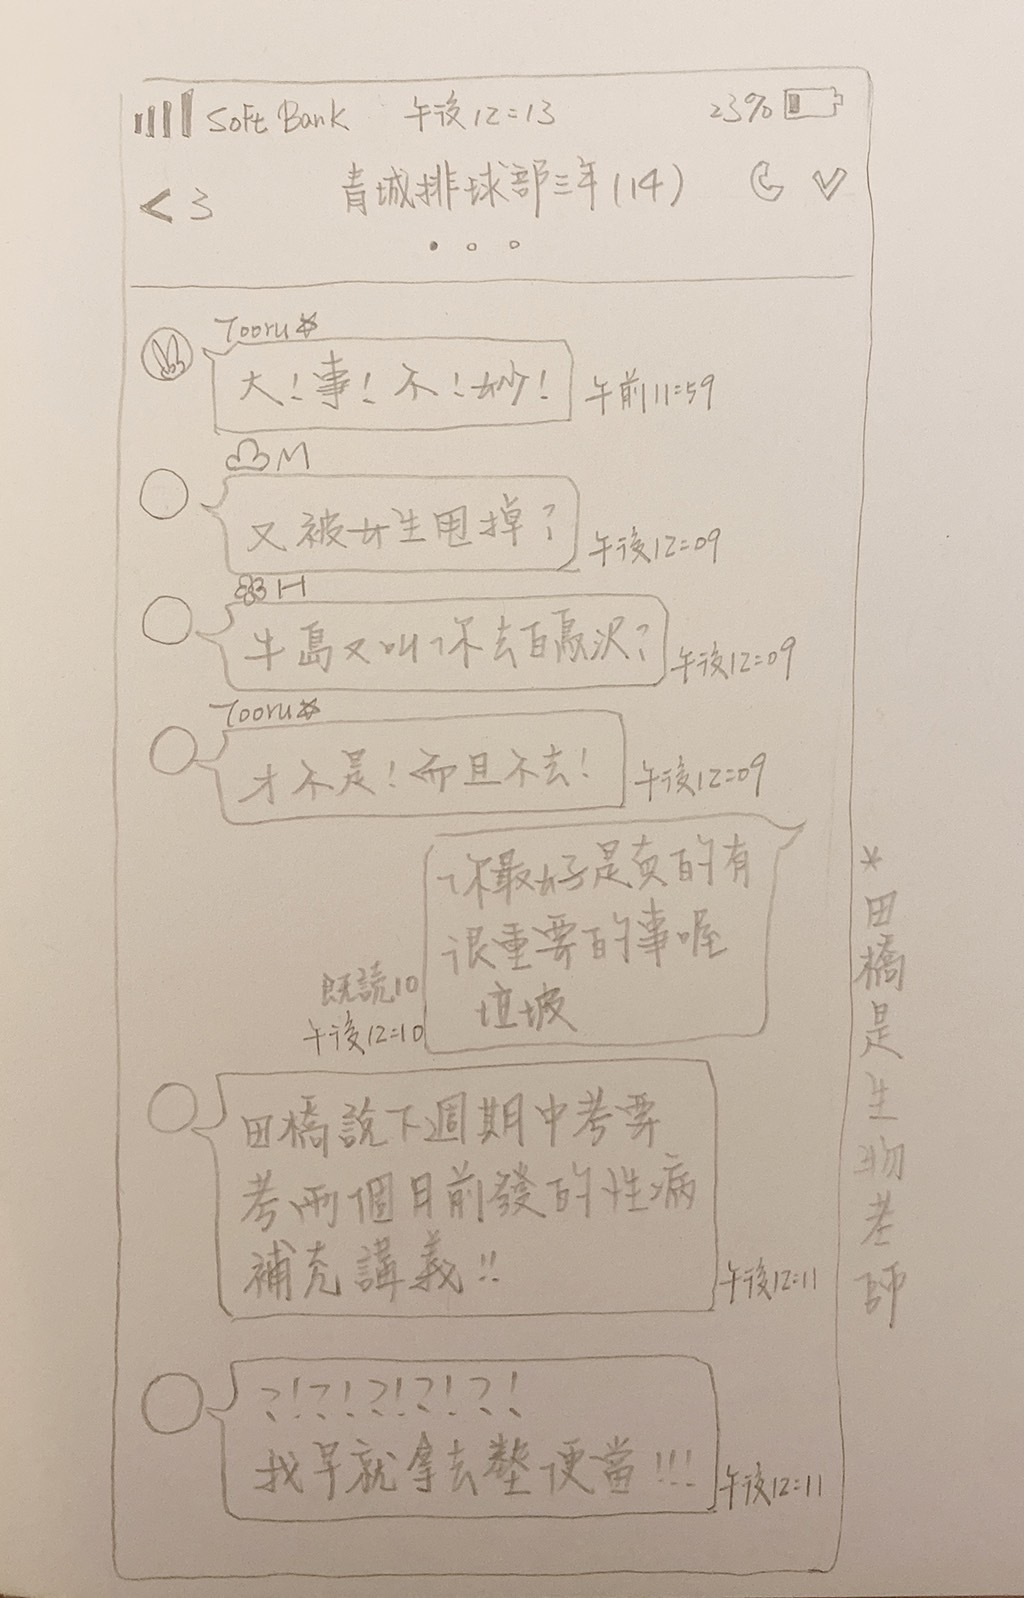 SoftBank 午後12:13 23%
< 3 青城排球部三年(14)
Tooru
大!事!不!妙! 午前11:59
M
又被女生甩掉? 午後12:09
H
牛島又叫你去白鳥沢? 午後12:09
Tooru
才不是!而且不去! 午後12:09
你最好是真的有
很重要的事喔
垃圾
既読10
午後12:10
田橋說下週期中考要
考兩個月前發的性病
補充講義!! 午後12:11
?!?!?!?!?!
我早就拿去墊便當!!! 午後12:11
*田橋是生物老師